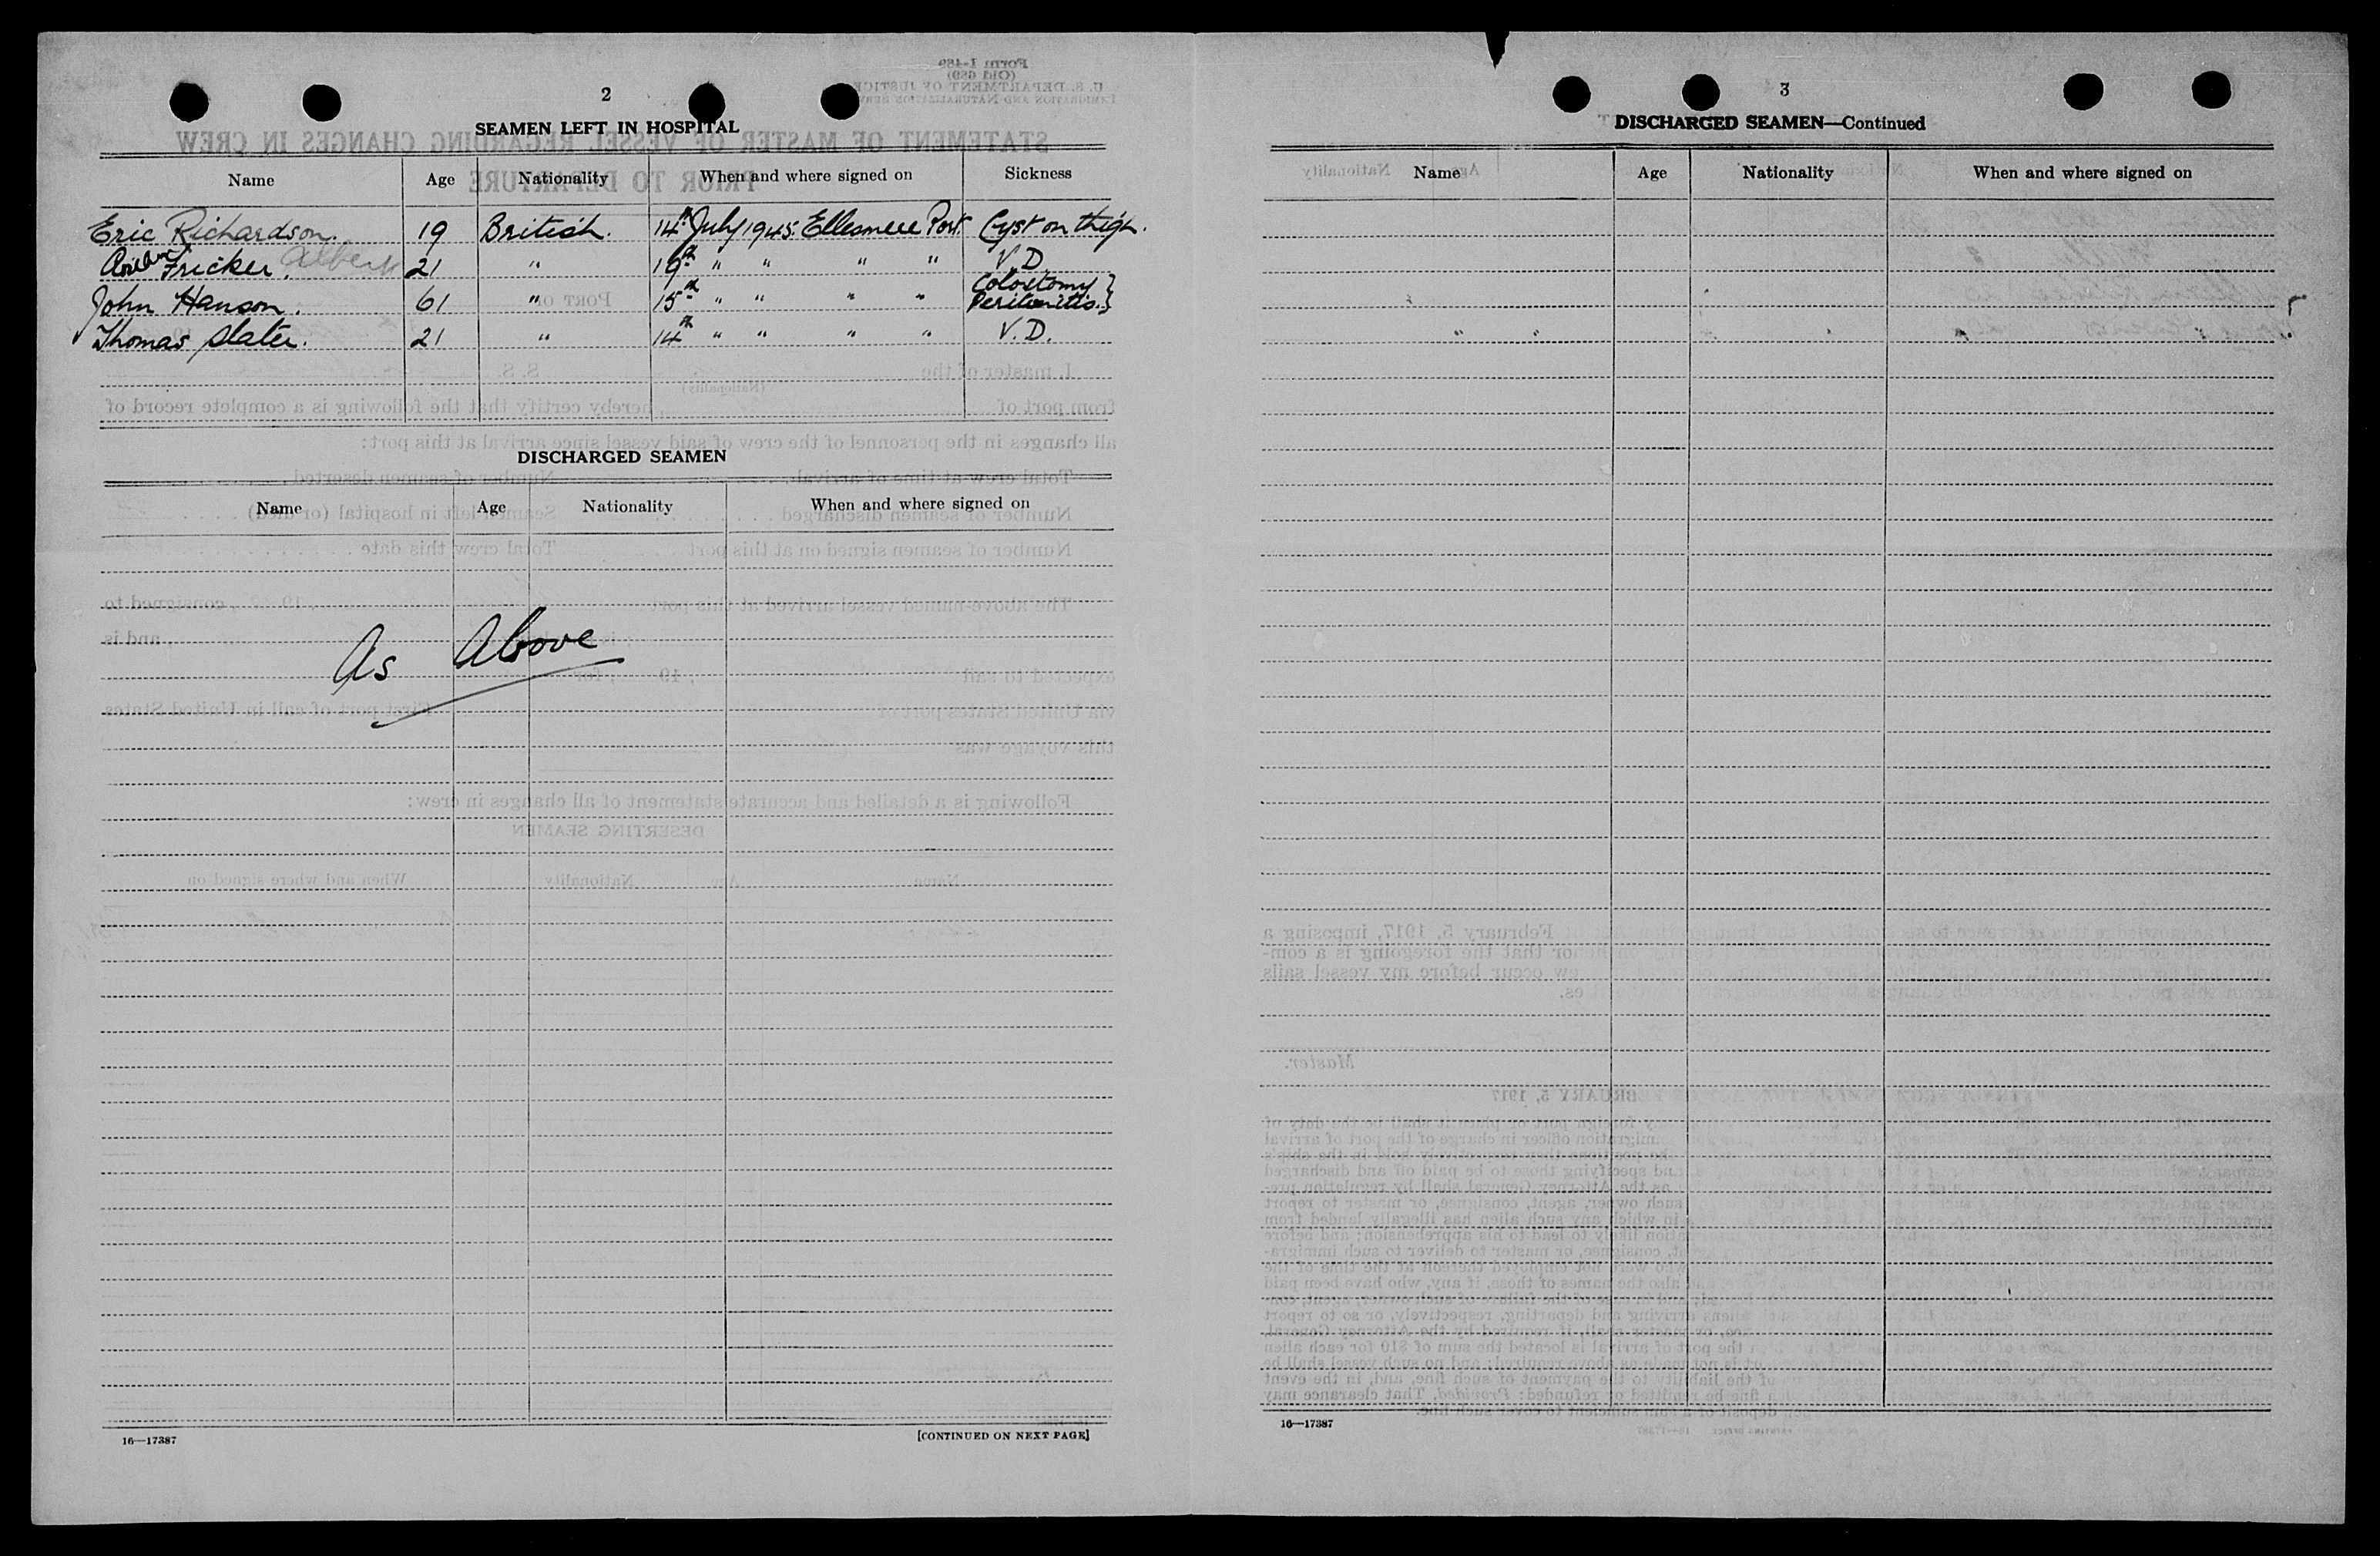 2
SEAMEN LEFT IN HOSPITAL
Name Age Nationality When and where signed on Sickness
Eric Richardson. 19 British. 14th July 1945. Ellesmere Port Cyst on thigh.
Fricker. Albert 21 " 19th " " " " V.D.
John Hanson. 61 " 15th " " " " Colostomy Peritonitis. }
Thomas Slater. 21 " 14th " " " " V.D.
DISCHARGED SEAMEN
Name Age Nationality When and where signed on
As Above
16—17387 [CONTINUED ON NEXT PAGE]
3
DISCHARGED SEAMEN—Continued
Name Age Nationality When and where signed on
16—17387